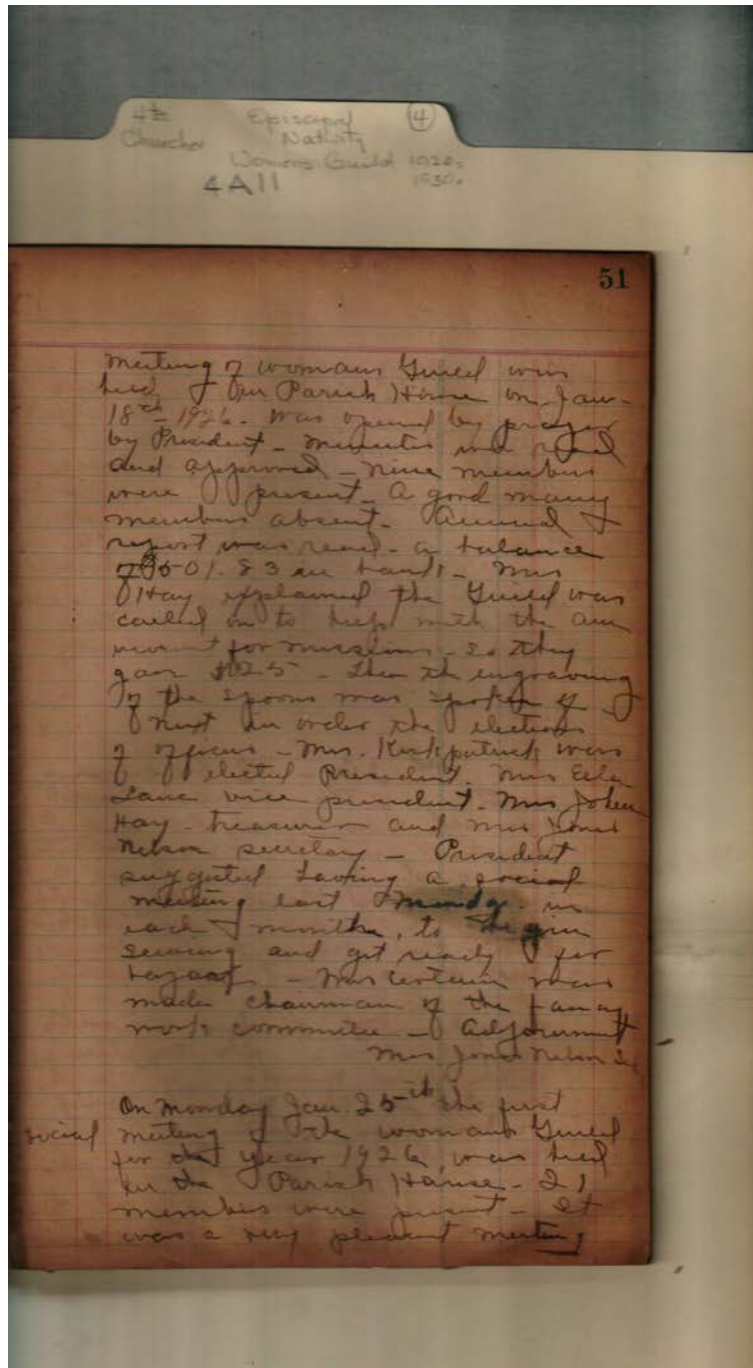 4th Episcopal ④
Churches Nativity
Womens Guild 1920s
4A11 1930s
51
Meeting of womans Guild was
held at our Parish House on Jan-
18th 1926. was opened by prayer
by President - minutes was read
and approved - nine members
were present - A good many
members absent - Annual
report was read - a balance
of $501.83 in hand - Mrs
Hay explained the Guild was
called on to help with the
for missions - so they
gave $125 - then the engraving
of the spoons was spoken of
next in order the elections
of officers - Mrs. Kirkpatrick was
elected President. Mrs
Lane vice president. Mrs John
Hay - treasurer and Mrs Jones
Nelson secretary - President
suggested having a social
meeting last Monday in
each month, to begin
sewing and get ready for
bazaar - Mrs was
made chairman of the fancy
work committee - Adjournment
Mrs. Jones Nelson Sec
On Monday Jan 25th the first
social meeting of the womans Guild
for the year 1926 was held
in the Parish House - 21
members were present - It
was a very pleasant meeting